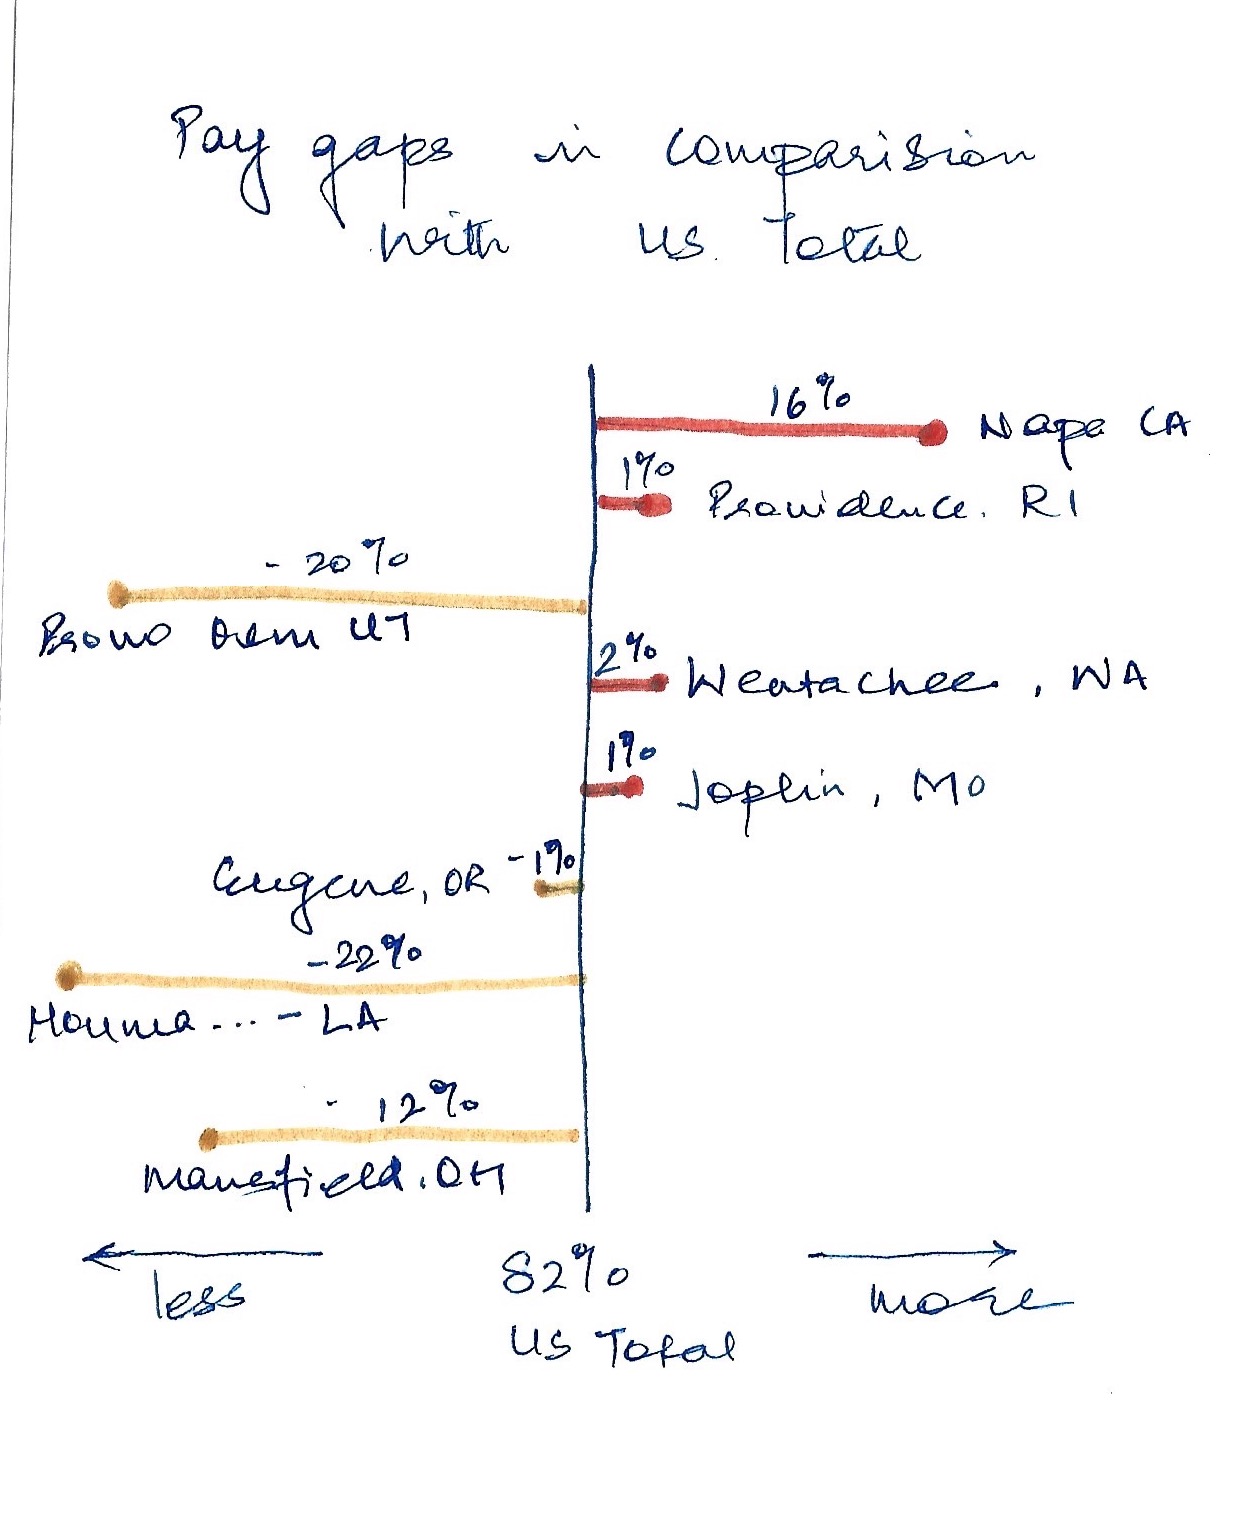 Pay gaps in comparision
with US Total
16%
Napa CA
1%
Providence. RI
- 20%
Provo Orem UT
2%
Wentachee, WA
1%
Joplin, MO
Eugene, OR -1%
-22%
Houma... - LA
- 12%
Mansfield. OH
less
82%
US Total
more